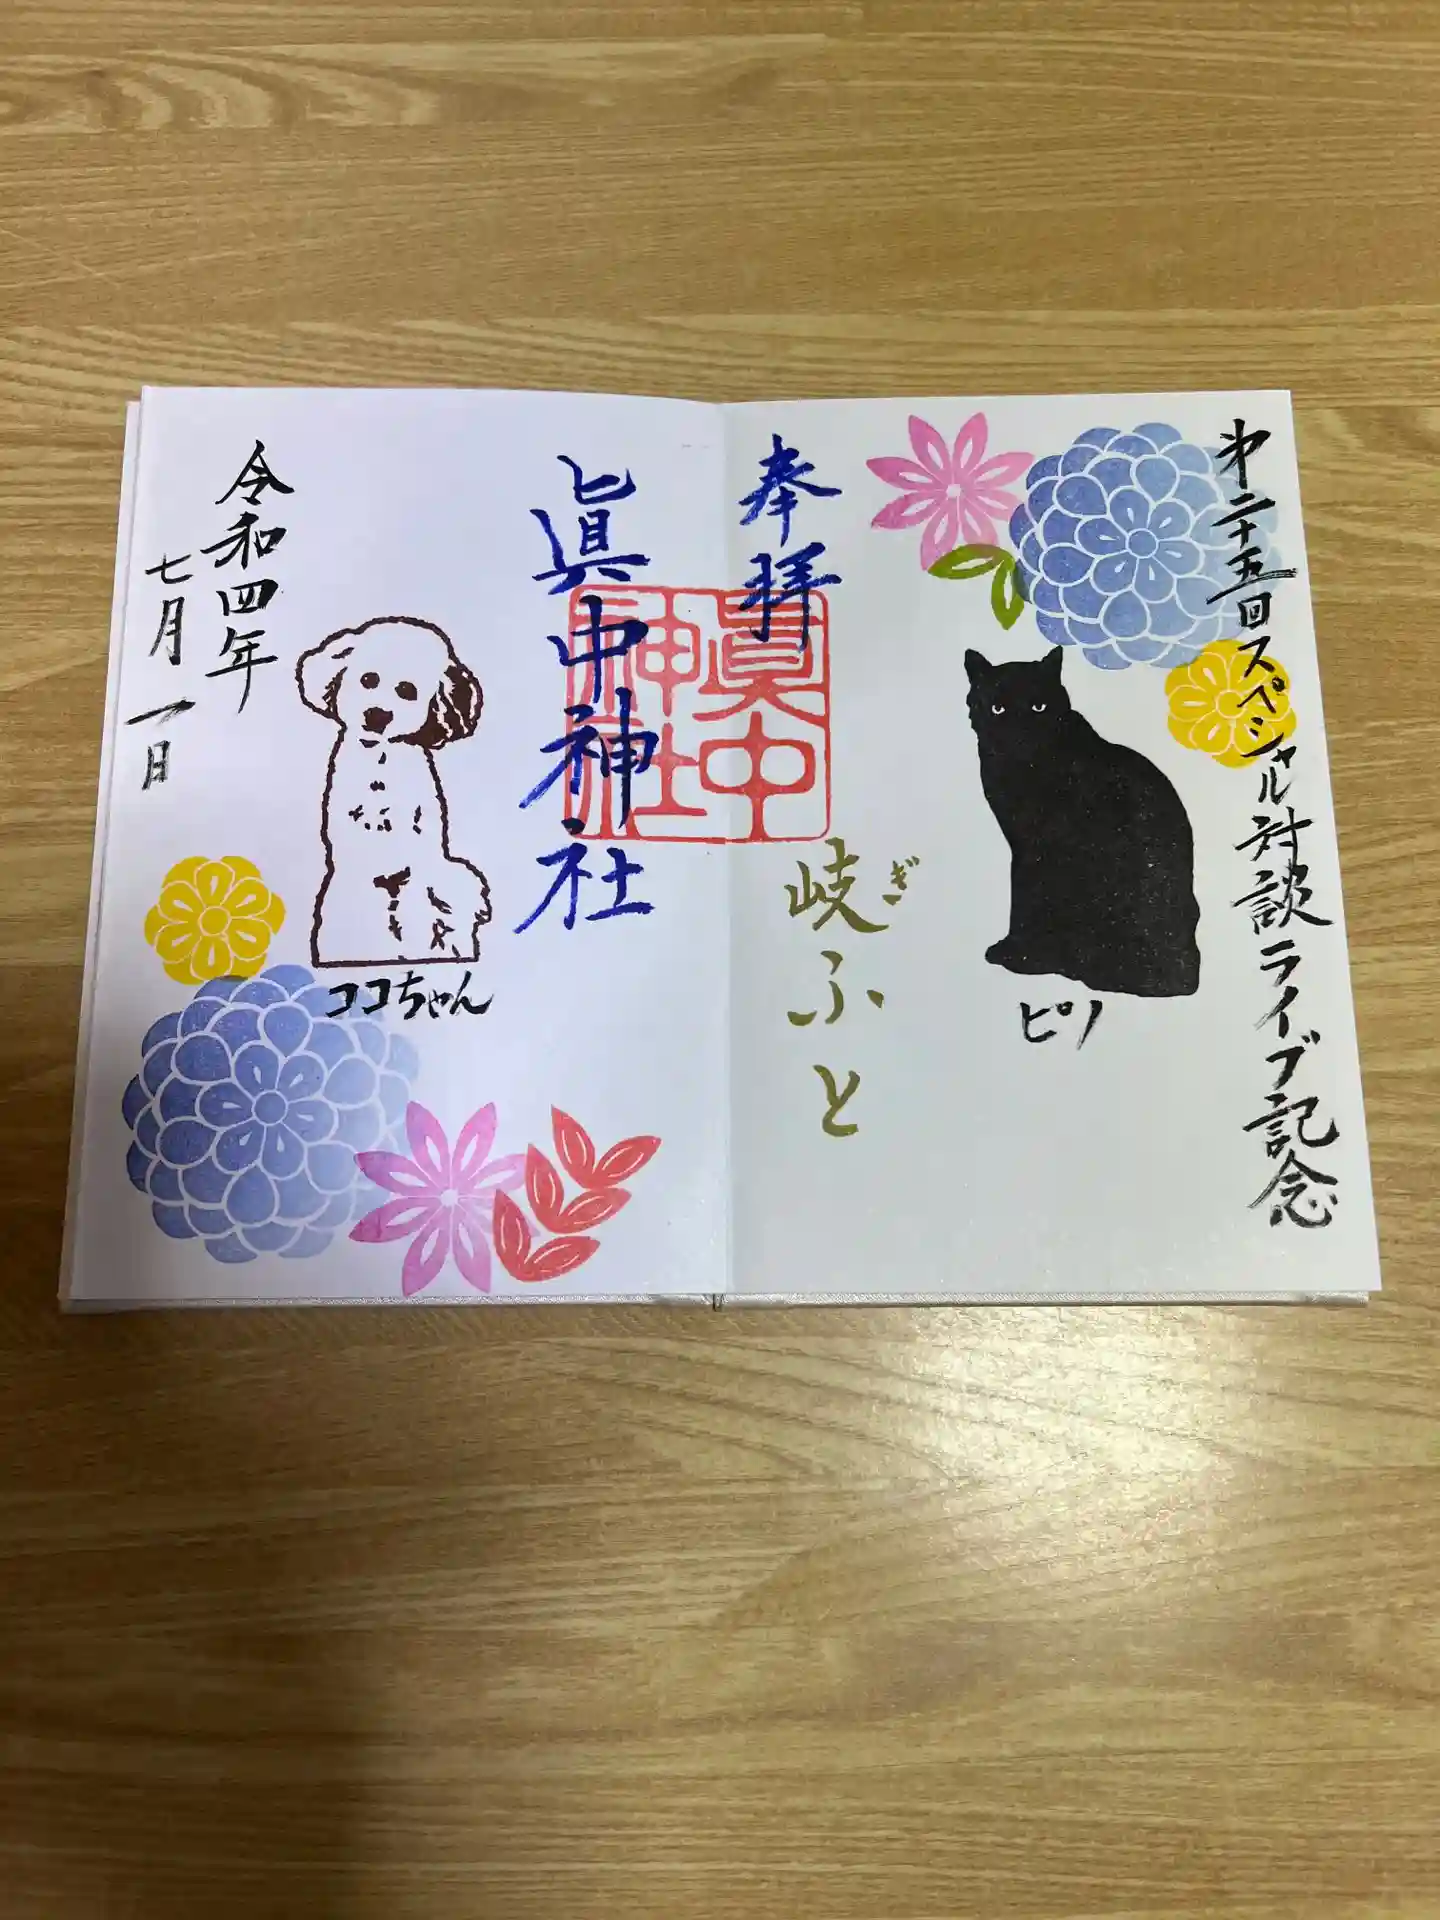 第二十五回スペシャル対談ライブ記念
ピノ
奉拝
岐ふと
ぎ
眞中
神社
眞中神社
ココちゃん
令和四年
七月一日